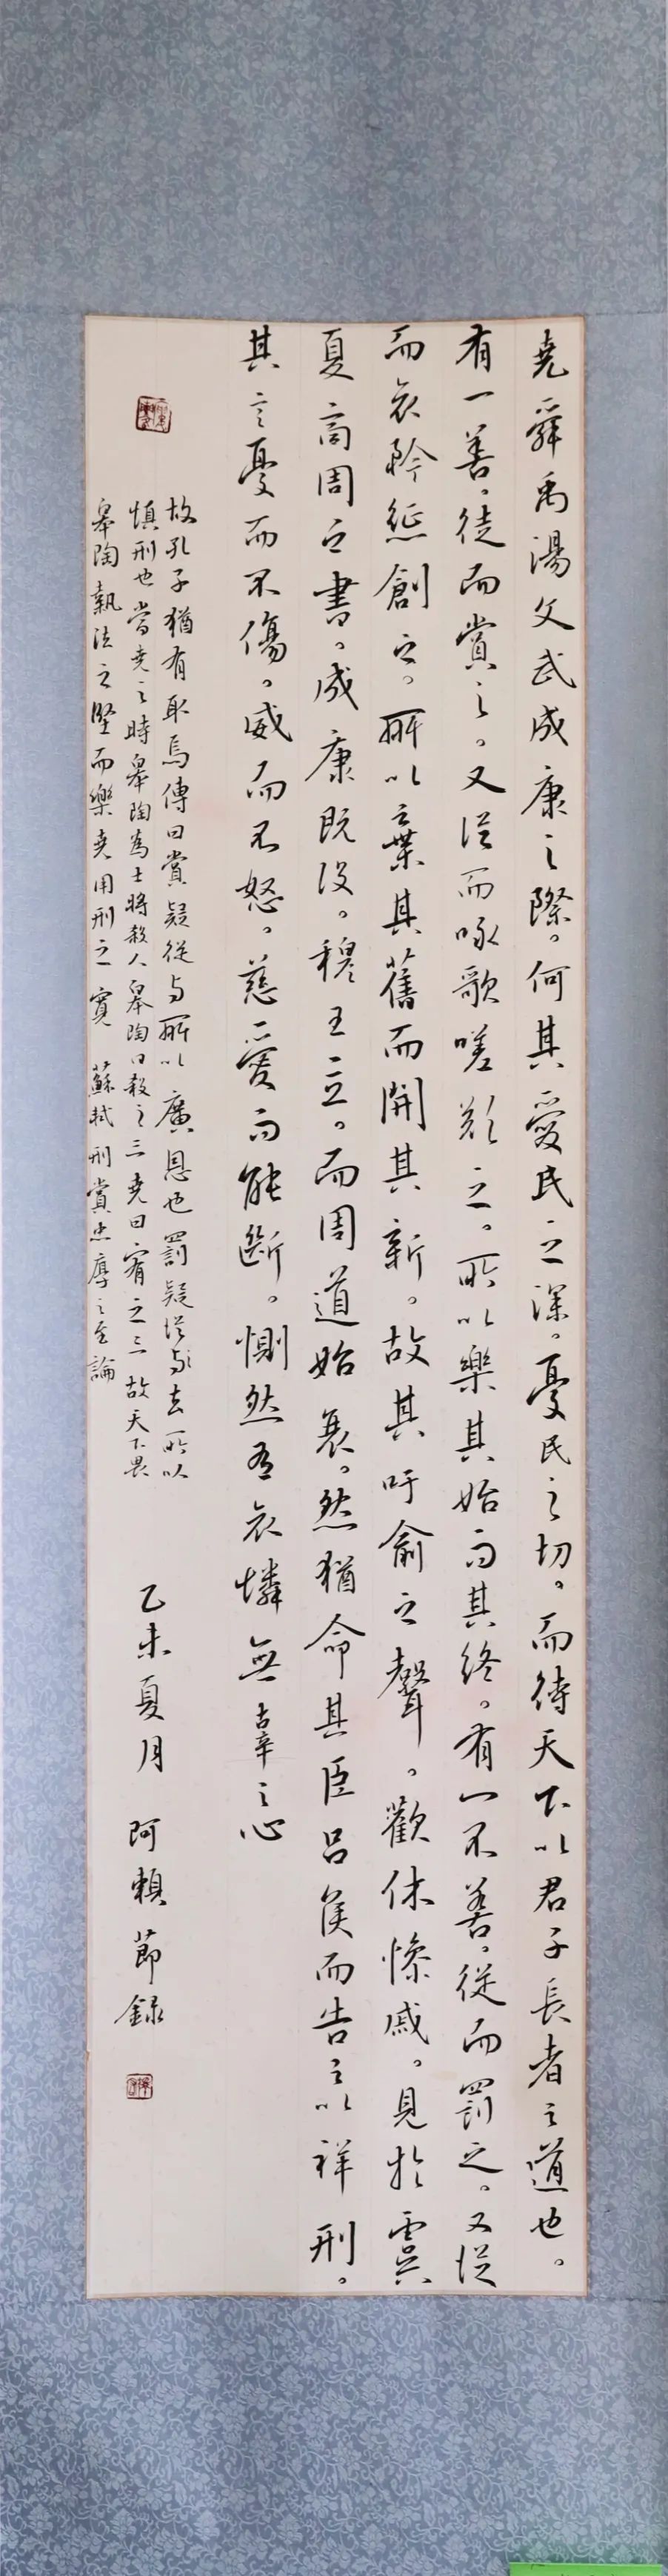 堯舜禹湯文武成康之際。何其愛民之深。憂民之切。而待天下以君子長者之道也。
有一善。從而賞之。又從而咏歌嗟歎之。所以樂其始而其終。有一不善。從而罰之。又從
而哀矜懲創之。所以棄其舊而開其新。故其吁俞之聲。歡休慘戚。見於虞
夏商周之書。成康既沒。穆王立。而周道始衰。然猶命其臣呂侯而告之以祥刑。
其言憂而不傷。威而不怒。慈愛而能斷。惻然有哀憐無辜之心
故孔子猶有取焉傳曰賞疑從与所以廣恩也罰疑從去所以
慎刑也當堯之時皋陶為士將殺人皋陶曰殺之三堯曰宥之三故天下畏
皋陶執法之堅而樂堯用刑之寬 蘇軾刑賞忠厚之至論
乙未夏月 阿賴節録